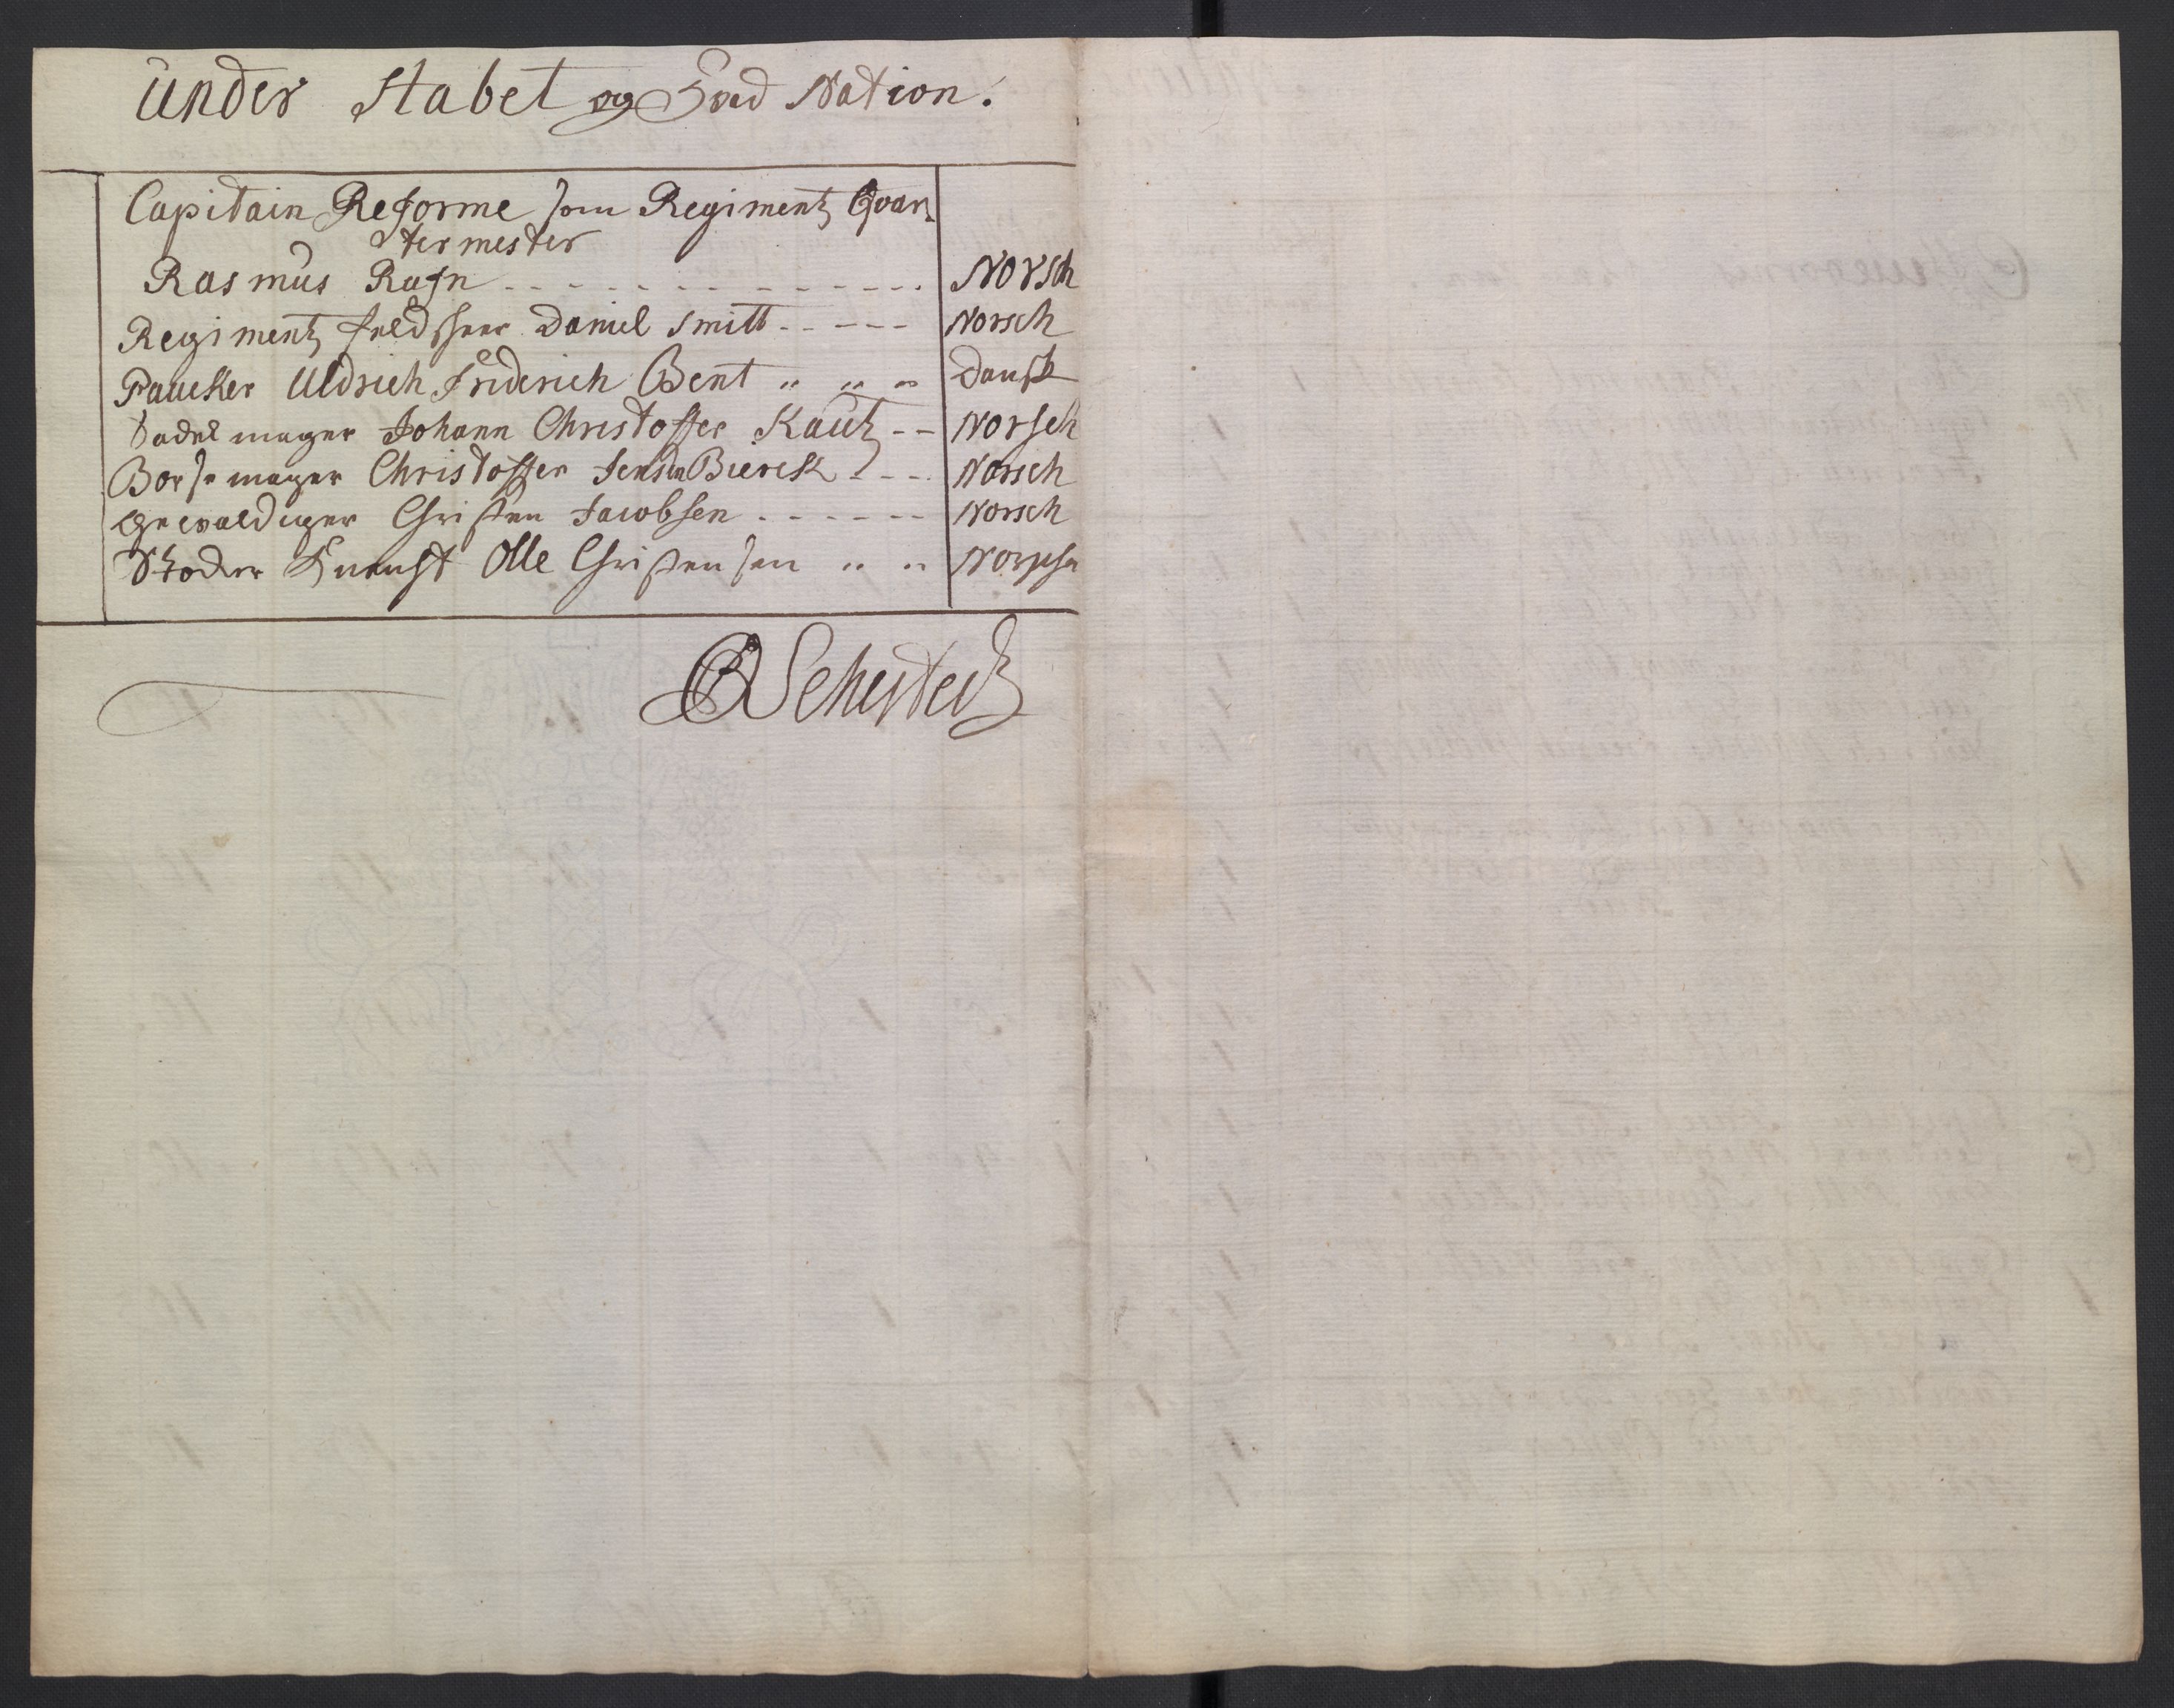 Under Stabet og Hvad Nation.
Capitain Reforme som Regimentz Qvar
termester
Rasmus Rafn - - - - - - - - - - - - - - Norsch
Regimentz Feldskier Daniel Smitt - - - - - Norsch
Paucker Uldrich Friderich Bent " " " Dansk
Sadelmager Johann Christoffer Kautz - - Norsch
Borsemager Christoffer Jensen Bierck - - - Norsch
Gewaldiger Christen Jacobsen - - - - - - Norsch
Stocker Knegt Olle Christensen " " Norsch
Schested